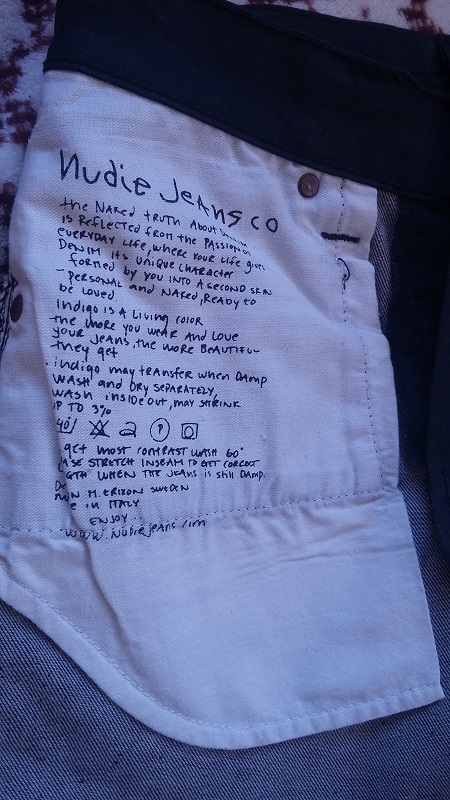 Nudie Jeans co
the NAKED truth About
is Reflected from the Passion of
everyday life, where your life gives
Denim its unique character
formed by you into a second skin
- personal and naked, ready to
be loved
Indigo is a living color
the more you wear and love
your jeans, the more beautiful
they get
indigo may transfer when damp
wash and dry separately,
wash inside out, may shrink
up to 3%
40
get most contrast wash 60°
stretch inseam to get correct
when the jeans is still damp.
M. Erixon Sweden
in Italy
ENJOY..
www.nudiejeans.com